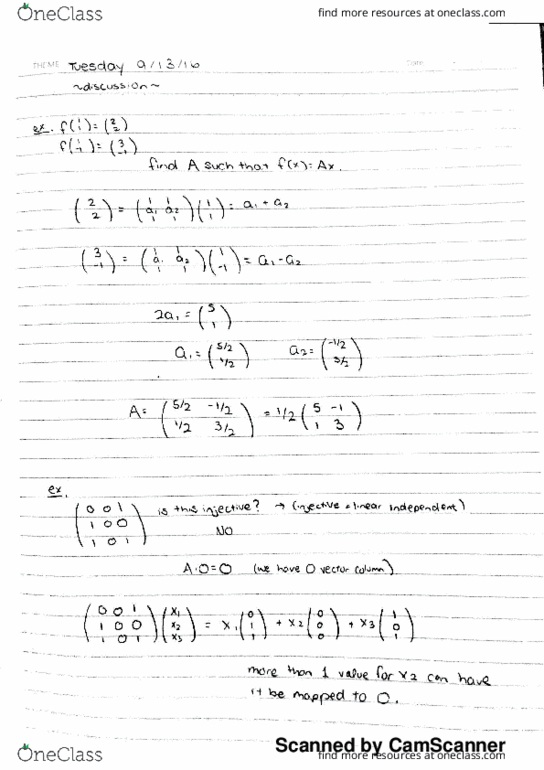 OneClass
find more resources at oneclass.com
THEME Tuesday 9/13/16 Date
~discussion~
ex. f(1 1) = (2 2)
f(1 -1) = (3 -1)
find A such that f(x)=Ax.
(2 2) = (1 1 a1 a2 1 1)(1 1) = a1 + a2
(3 -1) = (1 1 a1 a2 1 1)(1 -1) = a1 - a2
2a1 = (5 1)
a1 = (5/2 1/2) a2 = (-1/2 3/2)
A = (5/2 -1/2 1/2 3/2) = 1/2 (5 -1 1 3)
ex.
(0 0 1 1 0 0 1 0 1) is this injective? → (injective = linear independent)
NO
A·0=0 (we have 0 vector column)
(0 0 1 1 0 0 1 0 1)(x1 x2 x3) = x1(0 1 1) + x2(0 0 0) + x3(1 0 1)
more than 1 value for x2 can have
it be mapped to 0.
Scanned by CamScanner
OneClass
find more resources at oneclass.com